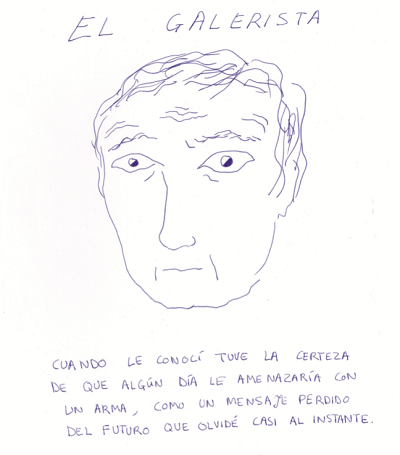 EL GALERISTA
CUANDO LE CONOCÍ TUVE LA CERTEZA
DE QUE ALGÚN DÍA LE AMENAZARÍA CON
UN ARMA, COMO UN MENSAJE PERDIDO
DEL FUTURO QUE OLVIDÉ CASI AL INSTANTE.